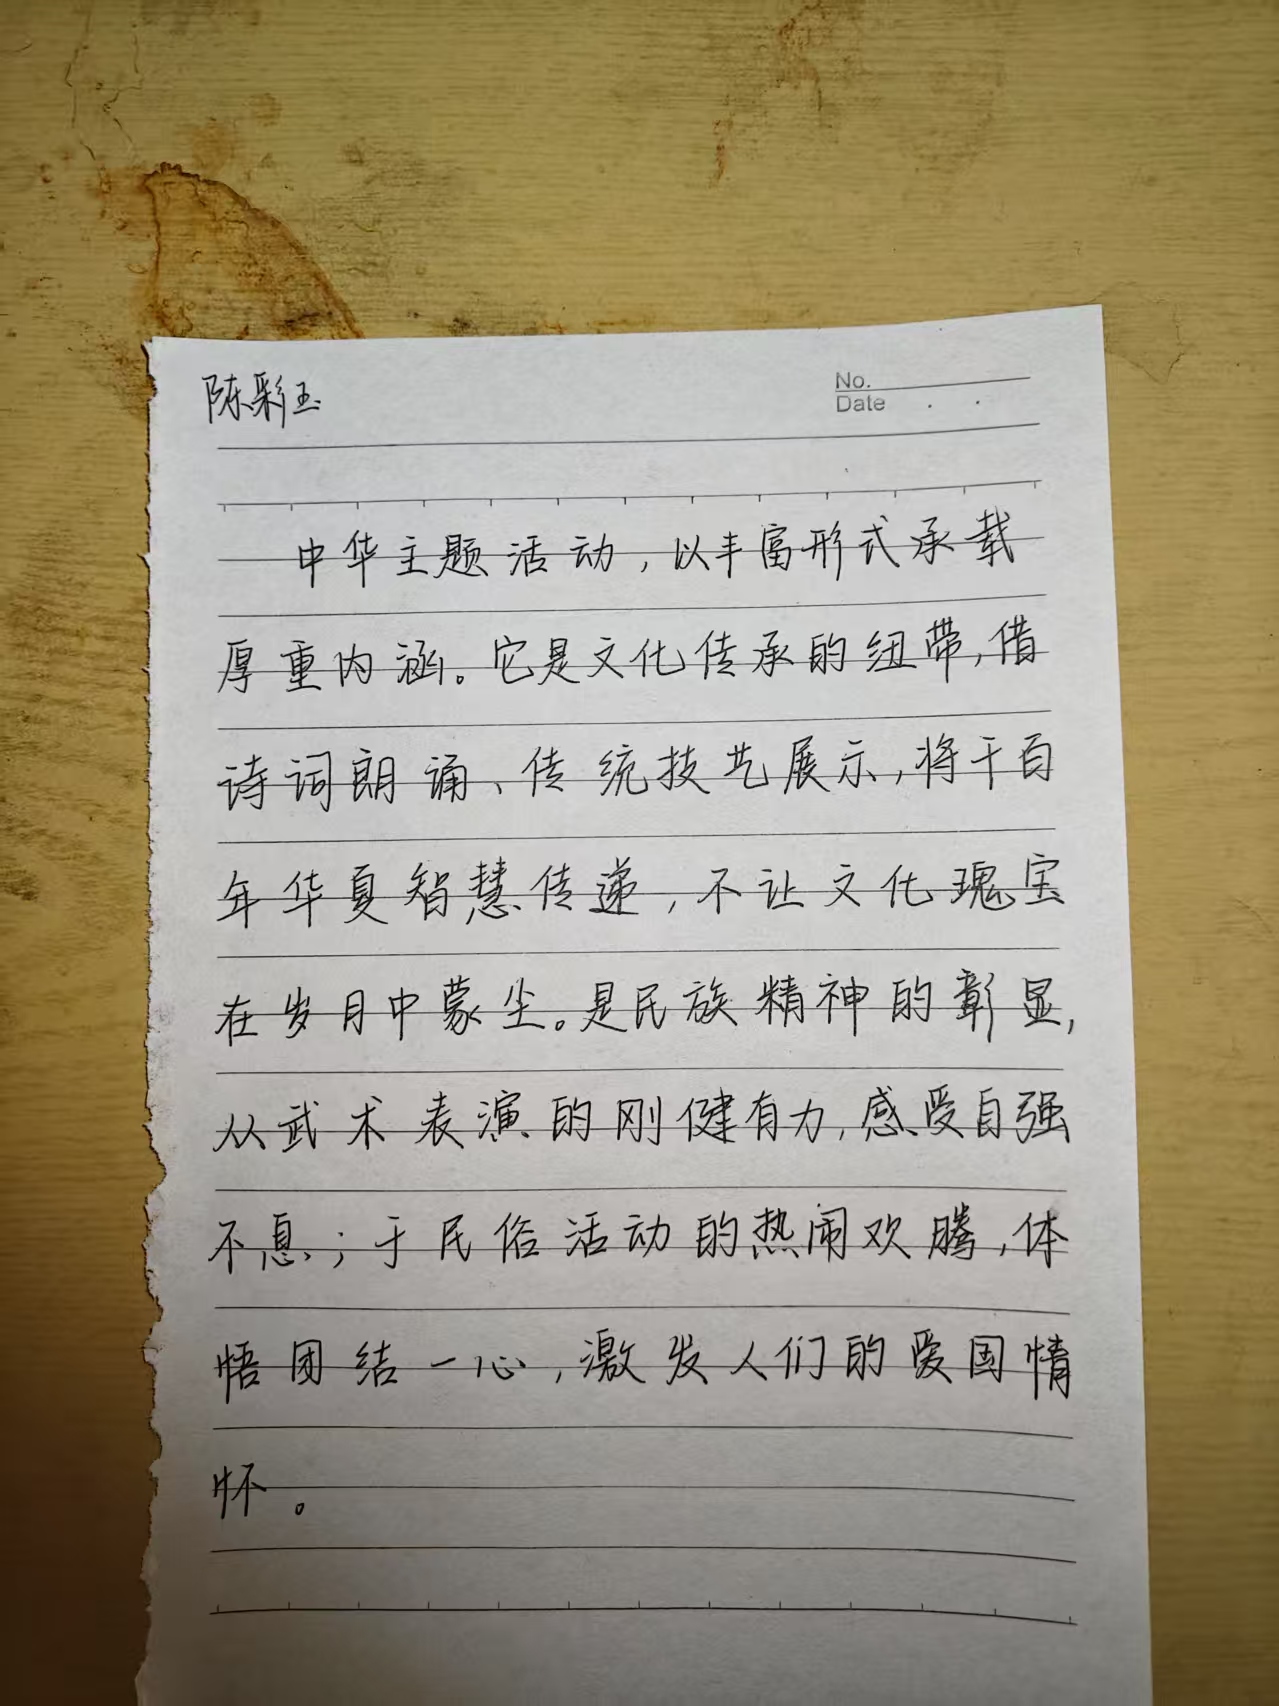 陈彩玉
No.
Date . .
中华主题活动，以丰富形式承载
厚重内涵。它是文化传承的纽带，借
诗词朗诵、传统技艺展示，将千百
年华夏智慧传递，不让文化瑰宝
在岁月中蒙尘。是民族精神的彰显，
从武术表演的刚健有力，感受自强
不息；于民俗活动的热闹欢腾，体
悟团结一心，激发人们的爱国情
怀。